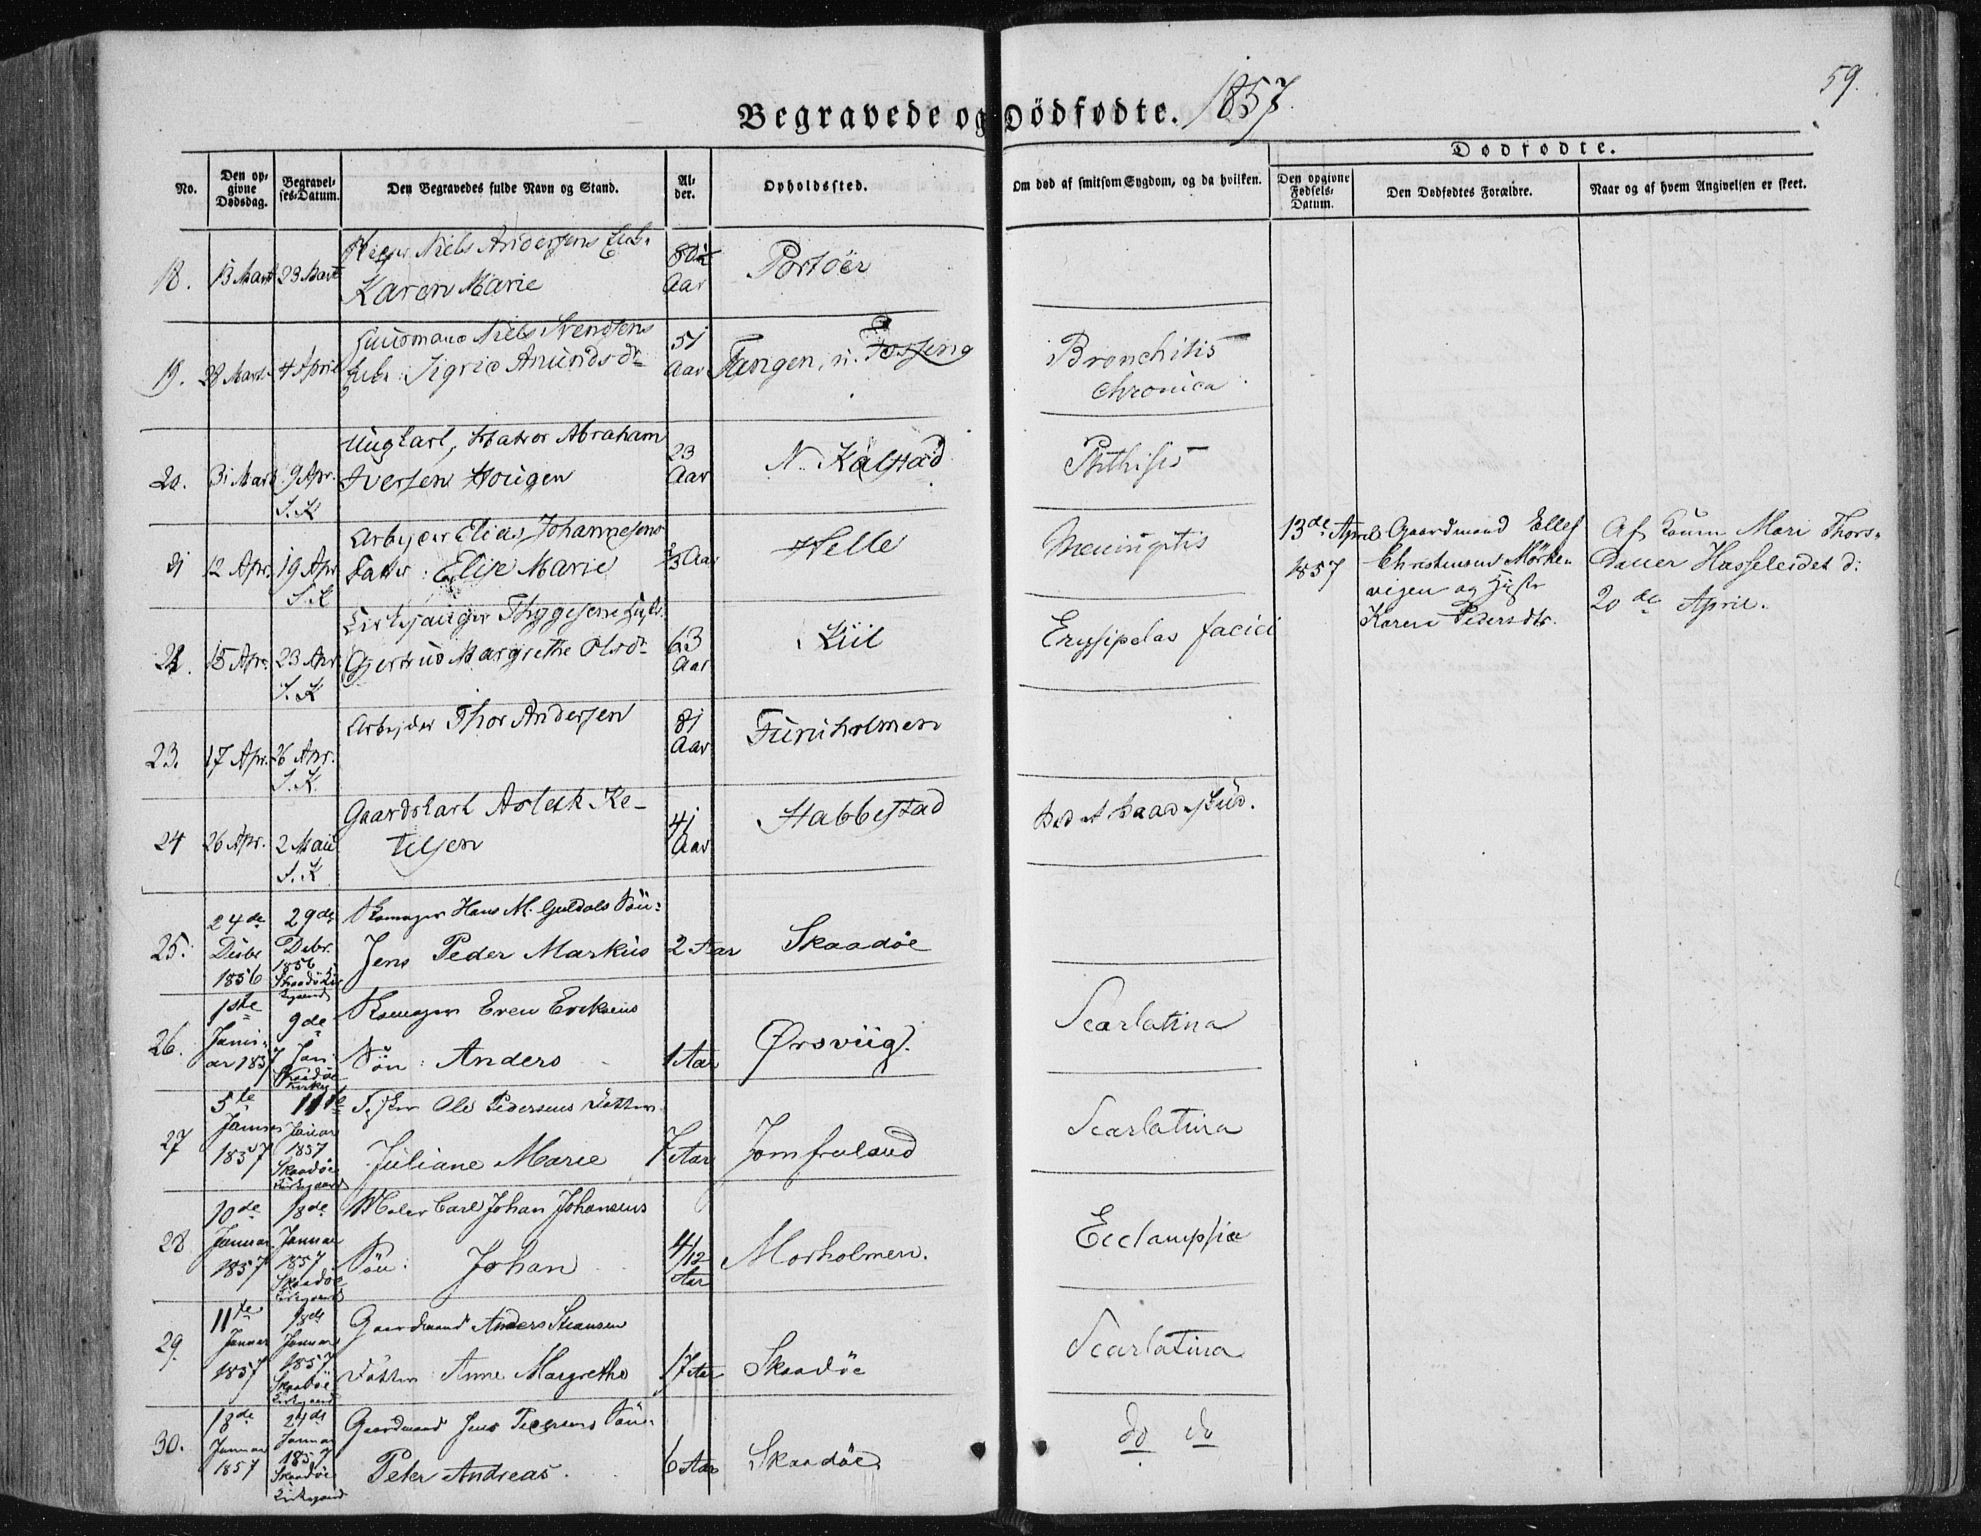 59.
Begravede og Dödfødte. 1857.
Dødfødte.
No.
Den opgivne Dødsdag.
Begravelses-Datum.
Den Begravedes fulde Navn og Stand.
Alder.
Opholdssted.
Om død af smitsom Sygdom, og da hvilken.
Den opgivne Fødsels-Datum.
Den Dødfødtes Forældre.
Naar og af hvem Angivelsen er skeet.
18. 13 Mart 23 Mart Niels Andersens
Karen Marie Aar Portöer
19. 28 Mart 4 April Huusmand Niels Svendsens
Sigrid Anunds dr 51 Aar Tangen, u. Fossing Bronchitis
chronica
20. 31 Mart 9 Apr. Ungkarl, Abraham
S.K Iversen Hougen 23 Aar N. Kalstad Phthisis
21 12 Apr. 19 Apr Arbejder Elias Johannesens
S.K Datter: Elise Marie 2/3 Aar Helle Meningitis
13de April 1857
Gaardmand Ellef
Christensens Mørke-
vigen og Hustr
Karen Pedersdtr.
Af Koum Mari Thors-
datter Hasseleidet d:
20de April.
22. 15 Apr. 23 Apr Kirkesanger Thygesens
S.K Gjertrud Margrethe Olsdr 63 Aar Kiil Erysipelas faciei
23. 17 Apr. 26 Apr. Arbejder Thor Andersen 81 Aar Furuholmen
S.K.
24 26 Apr. 2 Maii Gaardskarl Aslak Ke-
S.K telsen 41 Aar Stabbestad
25. 24de Decbr 1856 29de Debr. 1856 Skomager Hans M. Guldals Sön:
Jens Peder Markus 2 Aar Skaadöe
26. 1ste Janu-
ar 1857 9de Jan. Skaadöe Kirkeg Skomager Even Eriksens
Sön: Anders 1 Aar Ørsviig. Scarlatina
27 5te Januar 1857 11te Januar 1857 Skaadöe Kirkegaard Fisker Ole Pedersens Datter
Juliane Marie 7 Aar Jomfruland Scarlatina
28 10de Januar 1857 18de Januar 1857 Skaadöe Kirkegaard Maler Carl Johan Johansens
Sön: Johan 4/12 Aar Morholmen. Eclampsia
29. 11te Januar 1857 18de Januar 1857 Skaadöe Kirkegaard Gaardmand Anders
Datter Anne Margrethe 17 Aar Skaadöe Scarlatina
30. 18de Januar 1857 24de Januar 1857 Skaadöe Kirkegaard Gaardmand Jens Pedersens Sön:
Peter Andreas. 6 Aar Skaadöe do do